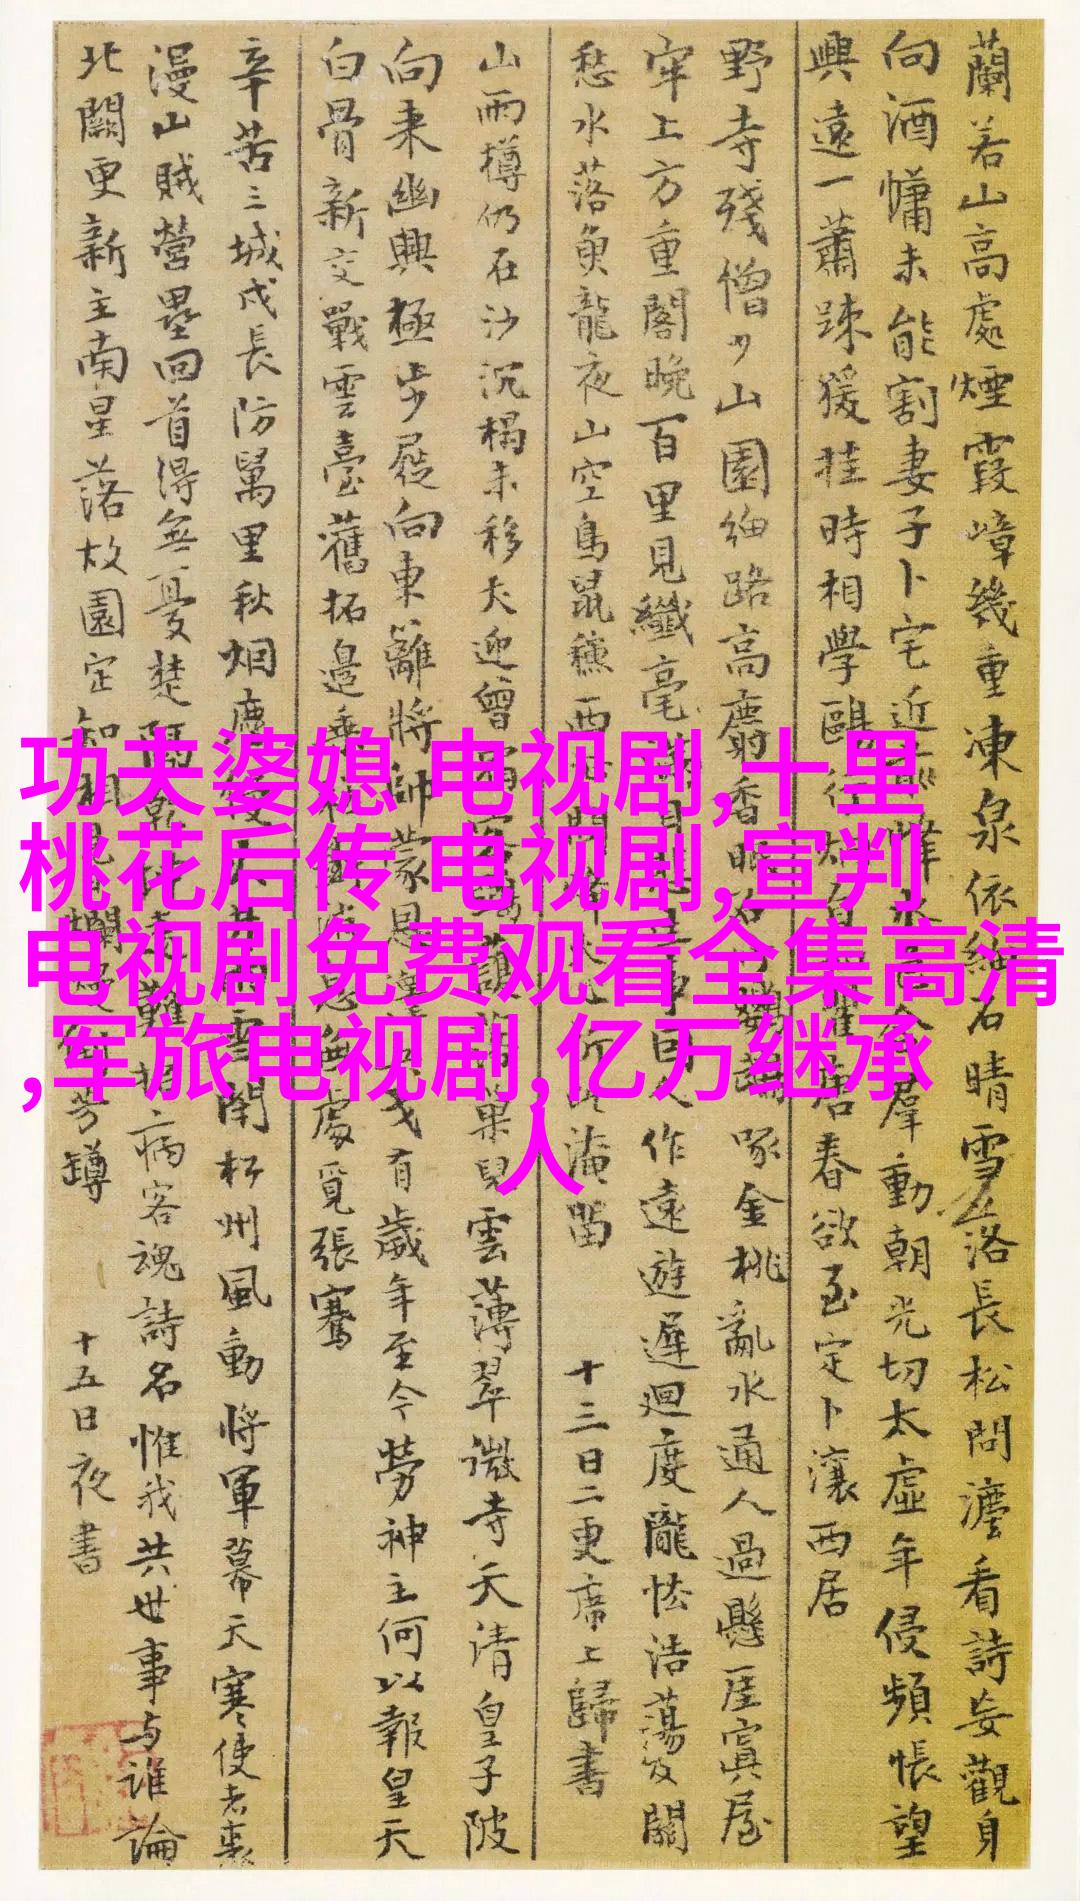 蘭若山高處煙霞嶂幾重凍泉依細石晴雪落長松問灋看詩妄觀身
向酒慵未能割妻子卜宅近前峰
群動朝光切太虛年侵頻悵望
興遠一蕭踈猨挂時相學鷗行
居春欲至定卜瀼西居
野寺殘僧少山園細路高麝香眠石
啄金桃亂水通人過懸崖寘屋
牢上方重閣晚百里見纖毫
作遠遊遲迴度隴怯浩蕩及關
愁水落魚龍夜山空鳥鼠穐西
淹留
十三日二更席上歸書
山雨樽仍在沙沉榻未移犬迎曾
巢兒雲薄翠微寺天清皇子陂
向來幽興極步屧向東籬將帥蒙恩澤
戈有歲年至今勞神主何以報皇天
白骨新交戰雲臺舊拓邊乘
處覓張騫
辛苦三城戍長防萬里秋烟塵
雪開
州風動將軍幕天寒使者裘
漫山賊營壘回首得無憂楚隔乾坤
病客魂詩名惟我共世事与誰論
北闕更新主南星落故園定知相見
芳罇
十五日夜書
功夫婆媳 电视剧,十里
桃花后传 电视剧,宣判
电视剧免费观看全集高清
,军旅电视剧,亿万继承
人